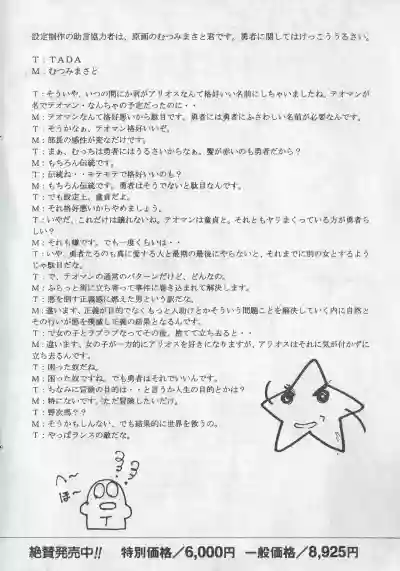 設定制作の助言協力者は、原画のむつみまさと君です。勇者に関してはけっこううるさい。
T：TADA
M：むつみまさと
T：そういや、いつの間にか君がアリオスなんて格好いい名前にしちゃいましたね。テオマンが
名でテオマン・なんちゃの予定だったのに・・
M：テオマンなんて格好悪いから駄目です。勇者には勇者にふさわしい名前が必要なんです。
T：そうかなぁ、テオマン格好いいぞ。
M：部長の感性が変なだけです。
T：まぁ、むっちは勇者にはうるさいからなぁ。髪が赤いのも勇者だから？
M：もちろん伝統です。
T：伝統ね・・モテモテで格好いいのも？
M：もちろん伝統です。勇者はそうでないと駄目なんです。
T：でも設定上、童貞だよ。
M：それ格好悪いからやめましょう。
T：いやだ、これだけは譲れないね。テオマンは童貞と。それともヤリまくっている方が勇者ら
しい？
M：それも嫌です。でも一度くらいは・・
T：いや、勇者たるのも真に愛する人と最期の最後にやらないと、それまでに別の女とするよう
じゃ駄目だな。
T：で、テオマンの通常のパターンだけど、どんなの。
M：ふらっと街に立ち寄って事件に巻き込まれて解決します。
T：悪を倒す正義感に燃えた男という訳だな。
M：違います、正義が目的でなくもっと人助けとかそういう問題ことを解決していく内に自然と
その行いが悪を殲滅し正義の結果となるんです。
T：で女の子とラブラブなってその後、捨てて立ち去ると・・
M：違います、女の子が一方的にアリオスを好きになりますが、アリオスはそれに気が付かずに
立ち去るんです。
T：困った奴だね。
M：困った奴ですね。でも勇者はそれでいいんです。
T：ちなみに冒険の目的は・・と言うか人生の目的とかは？
M：特にないです。ただ冒険したいだけ。
T：野次馬？？
M：そうかもしんない、でも結果的に世界を救うの。
T：やっぱランスの敵だな。
へ〜
ほ〜
T
絶賛発売中!! 特別価格／6,000円 一般価格／8,925円